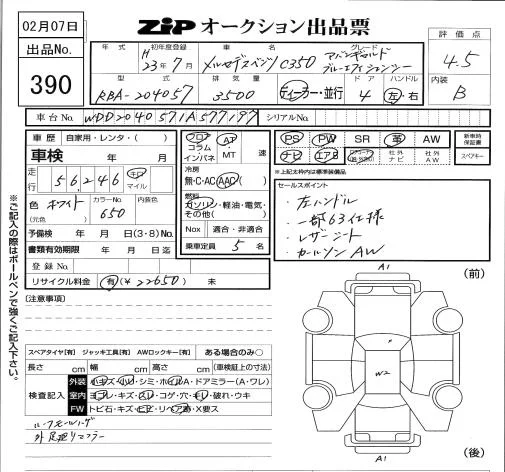 02月07日
ZIP オークション出品票
出品No.
390
年式 初年度登録 車名 グレード
H23年7月 メルセデスベンツ C350 アバンギャルド ブルーエフィシェンシー
評価点
4.5
型式 排気量 ドア ハンドル
RBA-204057 3500 ディーラー・並行 4 左・右
内装
B
車台No. WDD2040571A577197 シリアルNo.
車歴 自家用・レンタ・( )
車検 年 月
走行 56,246 キロ マイル
色 ホワイト (元色) カラーNo. 650 内装色
予備検 年 月 日(3・8)No.
書類有効期限 年 月 日迄
登録No.
リサイクル料金 有(¥22650) 未
フロア コラム インパネ AT MT 速
冷房
無・C・AC AAC
燃料
ガソリン・軽油・電気・その他( )
Nox 適合・非適合
乗車定員 5 名
PS PW SR 革 AW
ナビ エアB 社外ナビ 社外AW
新車時保証書
スペアキー
*上記太枠内は標準装備品
セールスポイント
・左ハンドル
・一部63仕様
・レザーシート
・カールソンAW
[注意事項]
スペアタイヤ[有] ジャッキ工具[有] AWロックキー[有] ある場合のみ〇
長さ cm 幅 cm 高さ cm (車検証上の寸法)
検査記入
外装 小キズ・小凹・シミ・ホイルA・ドアミラー(A・ワレ)
室内 ヨゴレ・キズ・スレ・コゲ・穴・キレ・破れ・ウキ
FW トビ石・キズ・ヒビ・リペア跡・X要ス
ルーフモールハゲ
外足廻りマフラー
※ご記入の際はボールペンで強くご記入下さい。
A1
(前)
W2
A1
(後)